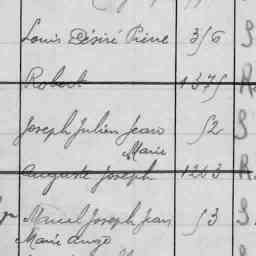 Louis Désiré Pierre 3/6 S
Robert 1375 R
Joseph Julien Jean 52 S
Marie
Auguste Joseph 1263 R
Marcel Joseph Jean 53 S
Marie Ange